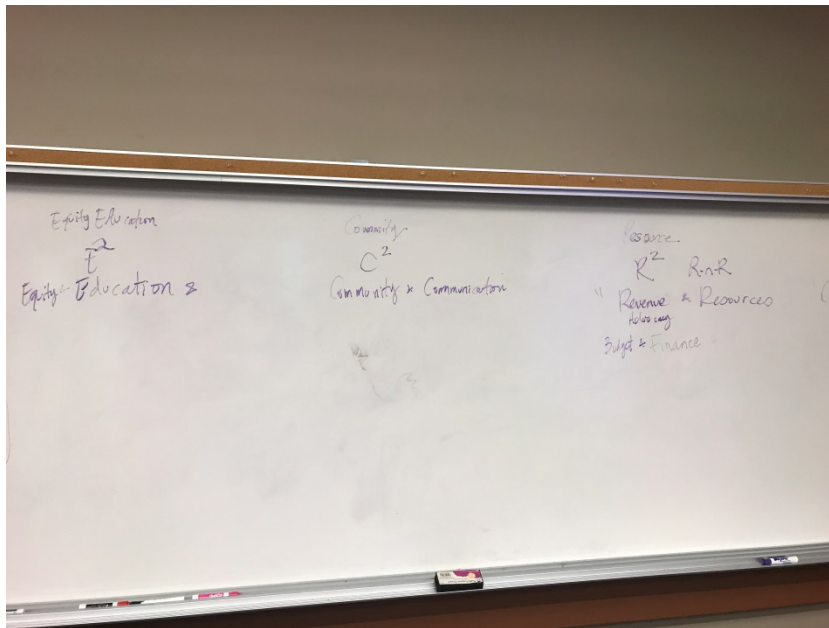 Equity Education
E²
Equity Education &
Community
C²
Community & Communication
Resource
R² R·n·R
" Revenue & Resources
Advocacy
Budget & Finance